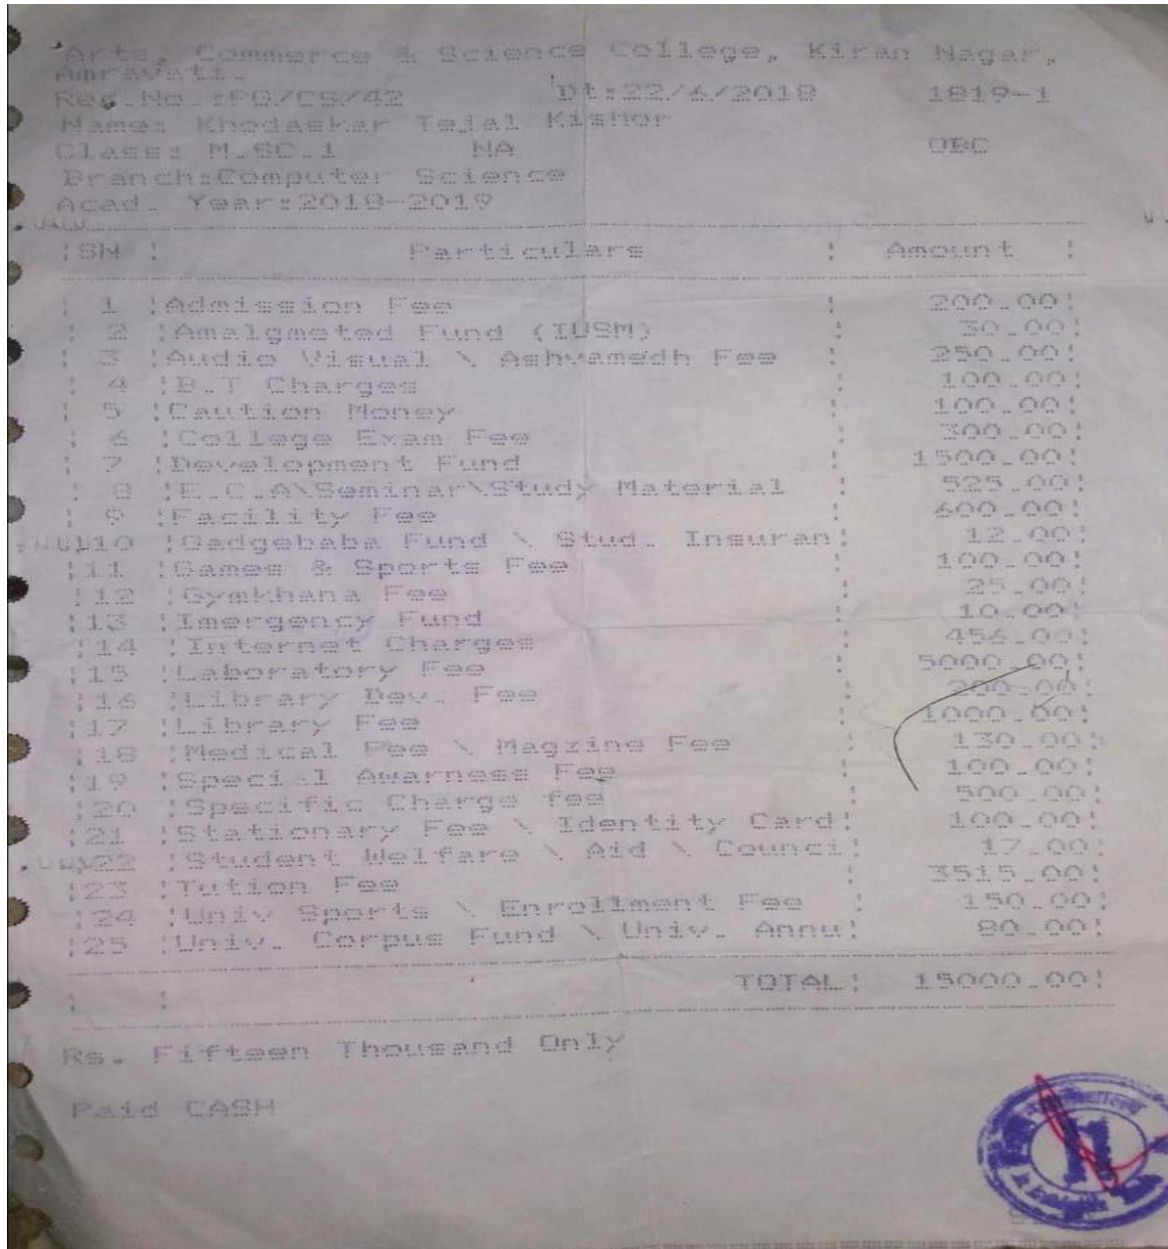 Arts, Commerce & Science College, Kiran Nagar,
Amravati.
Reg.No.:PG/CS/42 Dt:22/6/2018 1819-1
Name: Khodaskar Tejal Kishor
Class: M.SC.1 NA OBC
Branch:Computer Science
Acad. Year:2018-2019
|SN | Particulars | Amount |
| 1 |Admission Fee | 200.00|
| 2 |Amalgmated Fund (IUSM) | 30.00|
| 3 |Audio Visual \ Ashvamedh Fee | 250.00|
| 4 |B.T Charges | 100.00|
| 5 |Caution Money | 100.00|
| 6 |College Exam Fee | 300.00|
| 7 |Development Fund | 1500.00|
| 8 |E.C.A\Seminar\Study Material | 525.00|
| 9 |Facility Fee | 600.00|
|10 |Gadgebaba Fund \ Stud. Insuran| 12.00|
|11 |Games & Sports Fee | 100.00|
|12 |Gymkhana Fee | 25.00|
|13 |Imergency Fund | 10.00|
|14 |Internet Charges | 456.00|
|15 |Laboratory Fee | 5000.00|
|16 |Library Dev. Fee | 200.00|
|17 |Library Fee | 1000.00|
|18 |Medical Fee \ Magzine Fee | 130.00|
|19 |Special Awarness Fee | 100.00|
|20 |Specific Charge fee | 500.00|
|21 |Stationary Fee \ Identity Card| 100.00|
|22 |Student Welfare \ Aid \ Counci| 17.00|
|23 |Tution Fee | 3515.00|
|24 |Univ Sports \ Enrollment Fee | 150.00|
|25 |Univ. Corpus Fund \ Univ. Annu| 80.00|
| | TOTAL| 15000.00|
Rs. Fifteen Thousand Only
Paid CASH